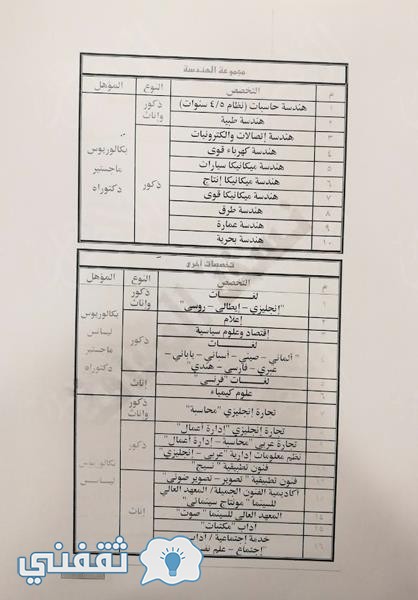 مجموعة الهندسة
م التخصص النوع المؤهل
١ هندسة حاسبات (نظام ٤/٥ سنوات) ذكور وإناث
٢ هندسة طبية
٣ هندسة إتصالات والكترونيات ذكور بكالوريوس ماجستير دكتوراه
٤ هندسة كهرباء قوى
٥ هندسة ميكانيكا سيارات
٦ هندسة ميكانيكا إنتاج
٧ هندسة ميكانيكا قوى
٨ هندسة طرق
٩ هندسة عمارة
١٠ هندسة بحرية
تخصصات أخرى
م التخصص النوع المؤهل
١ لغات ذكور وإناث
"إنجليزي - ايطالى - روسي"
٢ إعلام ذكور بكالوريوس ليسانس ماجستير دكتوراه
٣ إقتصاد وعلوم سياسية
٤ لغات
"ألماني - صيني - أسباني - ياباني -
عبري - فارسي - هندي"
٥ لغات "فرنسي" إناث
٦ علوم كيمياء
٧ تجارة إنجليزي "محاسبة" ذكور وإناث
تجارة إنجليزي "إدارة أعمال" ذكور بكالوريوس ليسانس
تجارة عربي "محاسبة - إدارة أعمال"
نظم معلومات إدارية "عربي - إنجليزي"
فنون تطبيقية "نسيج"
فنون تطبيقية "تصوير - تصوير ضوئي" إناث
اكاديمية الفنون الجميلة/ المعهد العالي
للسينما "مونتاج سينمائي"
١٤ المعهد العالي للسينما "صوت"
١٥ آداب "مكتبات"
١٦ خدمة إجتماعية / آداب
"إجتماع - علم
ثقفني